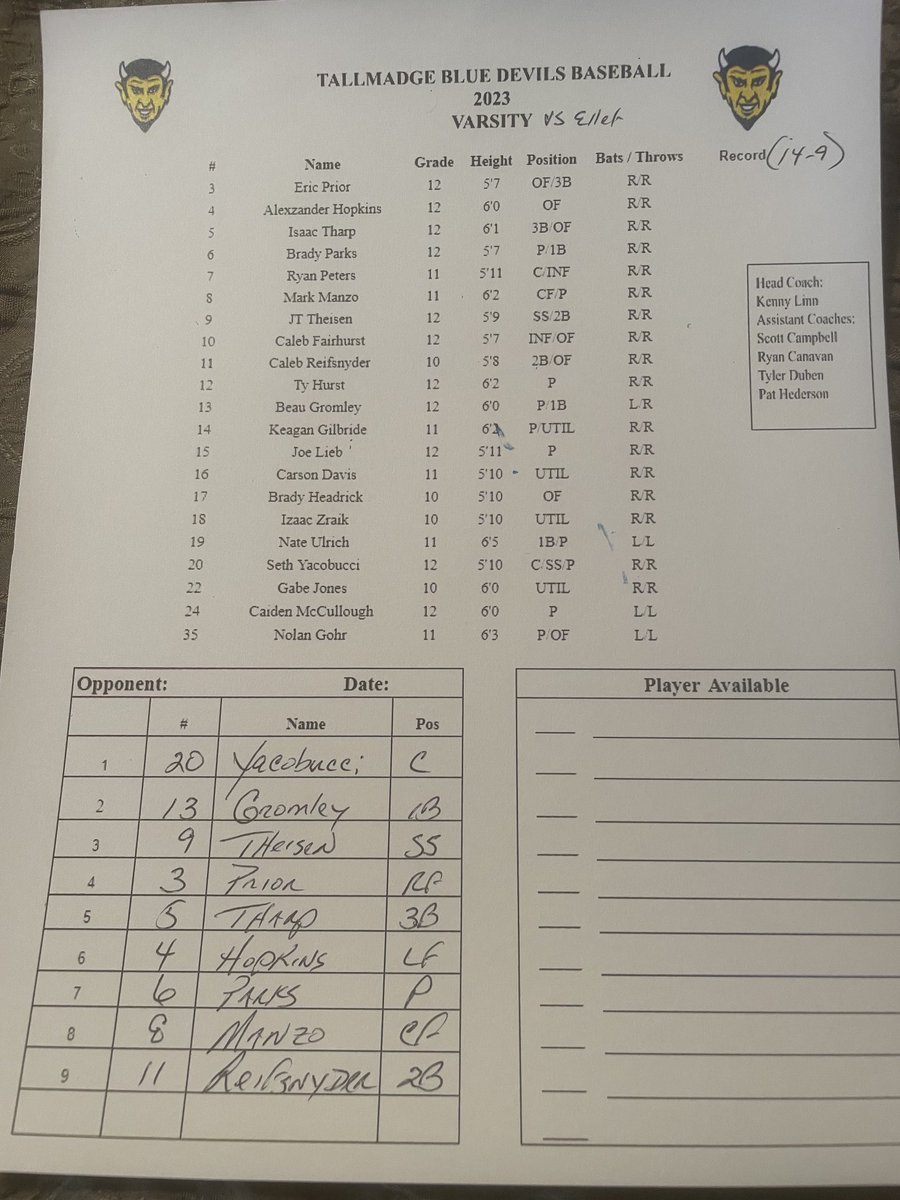 TALLMADGE BLUE DEVILS BASEBALL
2023
VARSITY vs Ellet
# Name Grade Height Position Bats / Throws Record (14-9)
3 Eric Prior 12 5'7 OF/3B R/R
4 Alexzander Hopkins 12 6'0 OF R/R
5 Isaac Tharp 12 6'1 3B/OF R/R
6 Brady Parks 12 5'7 P/1B R/R
7 Ryan Peters 11 5'11 C/INF R/R
8 Mark Manzo 11 6'2 CF/P R/R
9 JT Theisen 12 5'9 SS/2B R/R
10 Caleb Fairhurst 12 5'7 INF/OF R/R
11 Caleb Reifsnyder 10 5'8 2B/OF R/R
12 Ty Hurst 12 6'2 P R/R
13 Beau Gromley 12 6'0 P/1B L/R
14 Keagan Gilbride 11 6'2 P/UTIL R/R
15 Joe Lieb 12 5'11 P R/R
16 Carson Davis 11 5'10 UTIL R/R
17 Brady Headrick 10 5'10 OF R/R
18 Izaac Zraik 10 5'10 UTIL R/R
19 Nate Ulrich 11 6'5 1B/P L/L
20 Seth Yacobucci 12 5'10 C/SS/P R/R
22 Gabe Jones 10 6'0 UTIL R/R
24 Caiden McCullough 12 6'0 P L/L
35 Nolan Gohr 11 6'3 P/OF L/L
Head Coach:
Kenny Linn
Assistant Coaches:
Scott Campbell
Ryan Canavan
Tyler Duben
Pat Hederson
Opponent: Date:
# Name Pos
1 20 Yacobucci C
2 13 Gromley 1B
3 9 THeisen SS
4 3 PRIOR RF
5 5 THARP 3B
6 4 HOPKINS LF
7 6 PARKS P
8 8 MANZO CF
9 11 REIFSNYDER 2B
Player Available